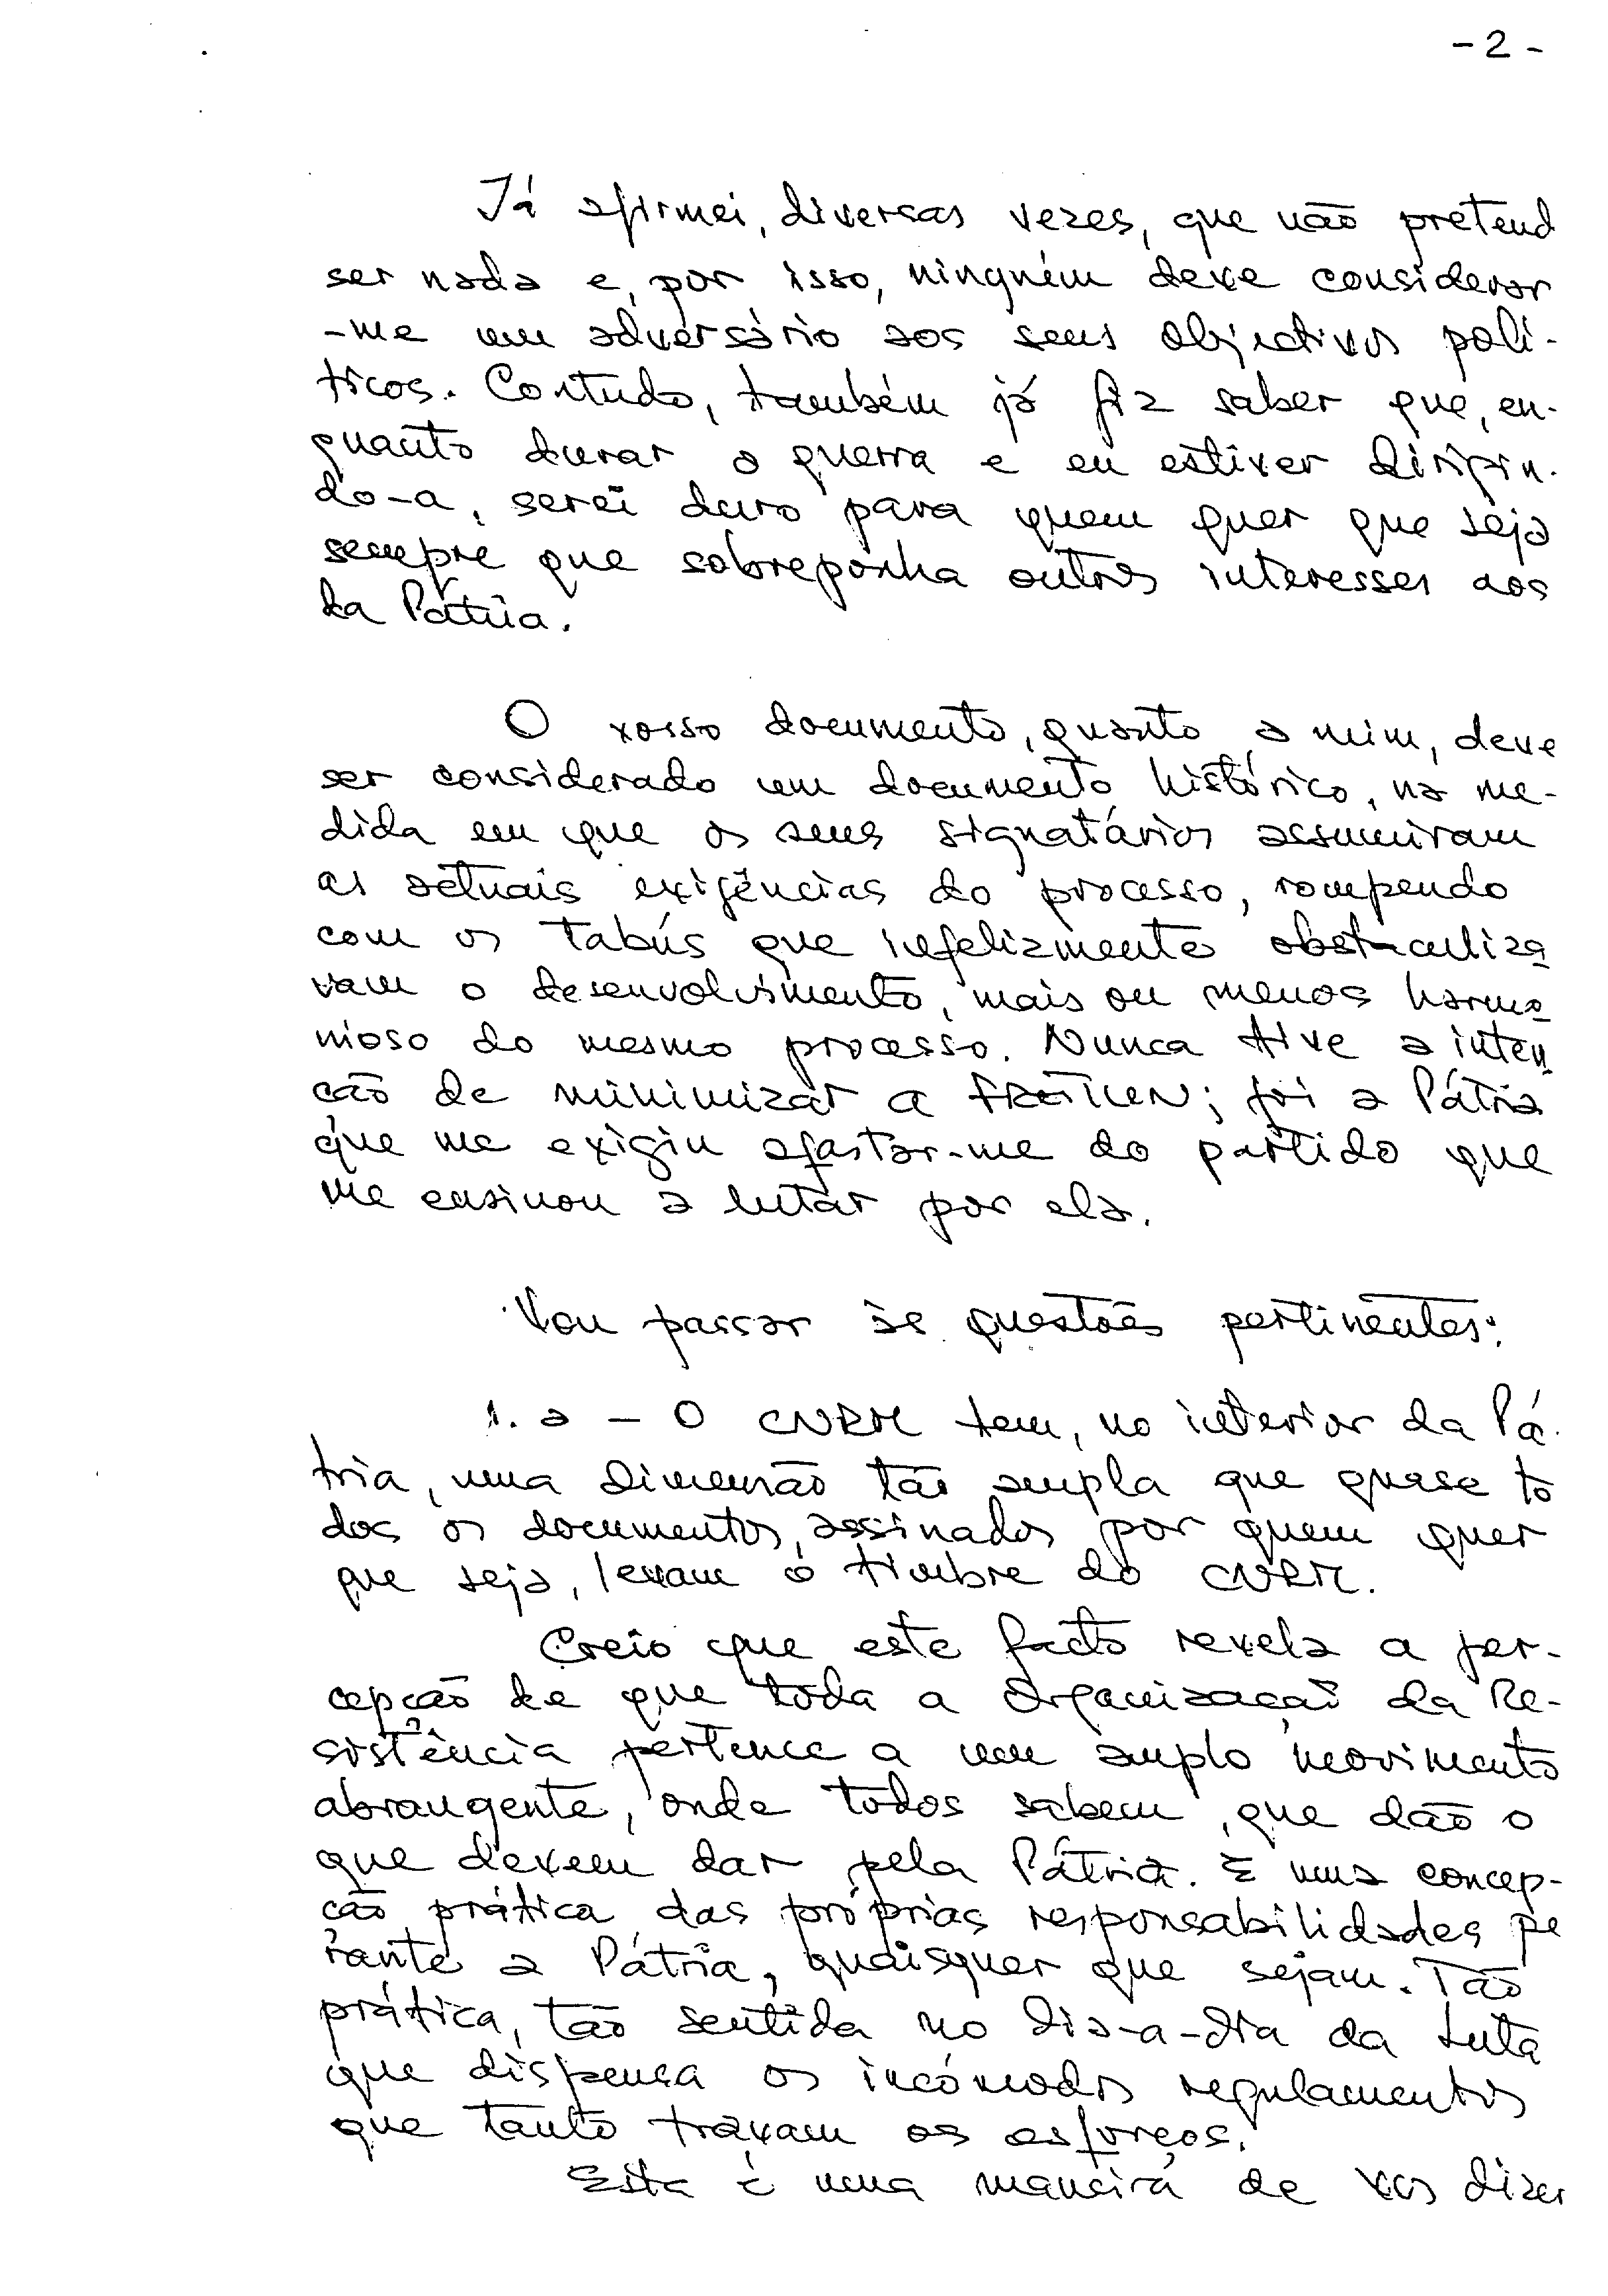 - 2 -
Já afirmei, diversas vezes, que não pretend
ser nada e, por isso, ninguém deve considerar
-me um adversário aos seus objectivos polí-
ticos. Contudo, também já fiz saber que, en-
quanto durar a guerra e eu estiver dirigin-
do-a, serei duro para quem quer que seja
sempre que sobreponha outros interesses aos
da Pátria.
O vosso documento, quanto a mim, deve
ser considerado um documento histórico, na me-
dida em que os seus signatários assumiram
as actuais exigências do processo, rompendo
com os tabús que infelizmente obstaculiza
vam o desenvolvimento, mais ou menos harmo
nioso do mesmo processo. Nunca tive a inten
ção de minimizar a FRETILIN; foi a Pátria
que me exigiu afastar-me do partido que
me ensinou a lutar por ela.
Vou passar às questões pertinentes:
1. a - O CNRM tem, no interior da Pá-
tria, uma dimensão tão ampla que quase to
dos os documentos, assinados por quem quer
que seja, levam o timbre do CNRM.
Creio que este facto revela a per-
cepção de que toda a Organização da Re-
sistência pertence a um amplo movimento
abrangente, onde todos sabem que dão o
que devem dar pela Pátria. É uma concep-
ção prática das próprias responsabilidades pe
rante a Pátria, quaisquer que sejam. Tão
prática, tão sentida no dia-a-dia da Luta
que dispensa os incómodos regulamentos
que tanto travam os esforços.
Esta é uma maneira de vos dizer